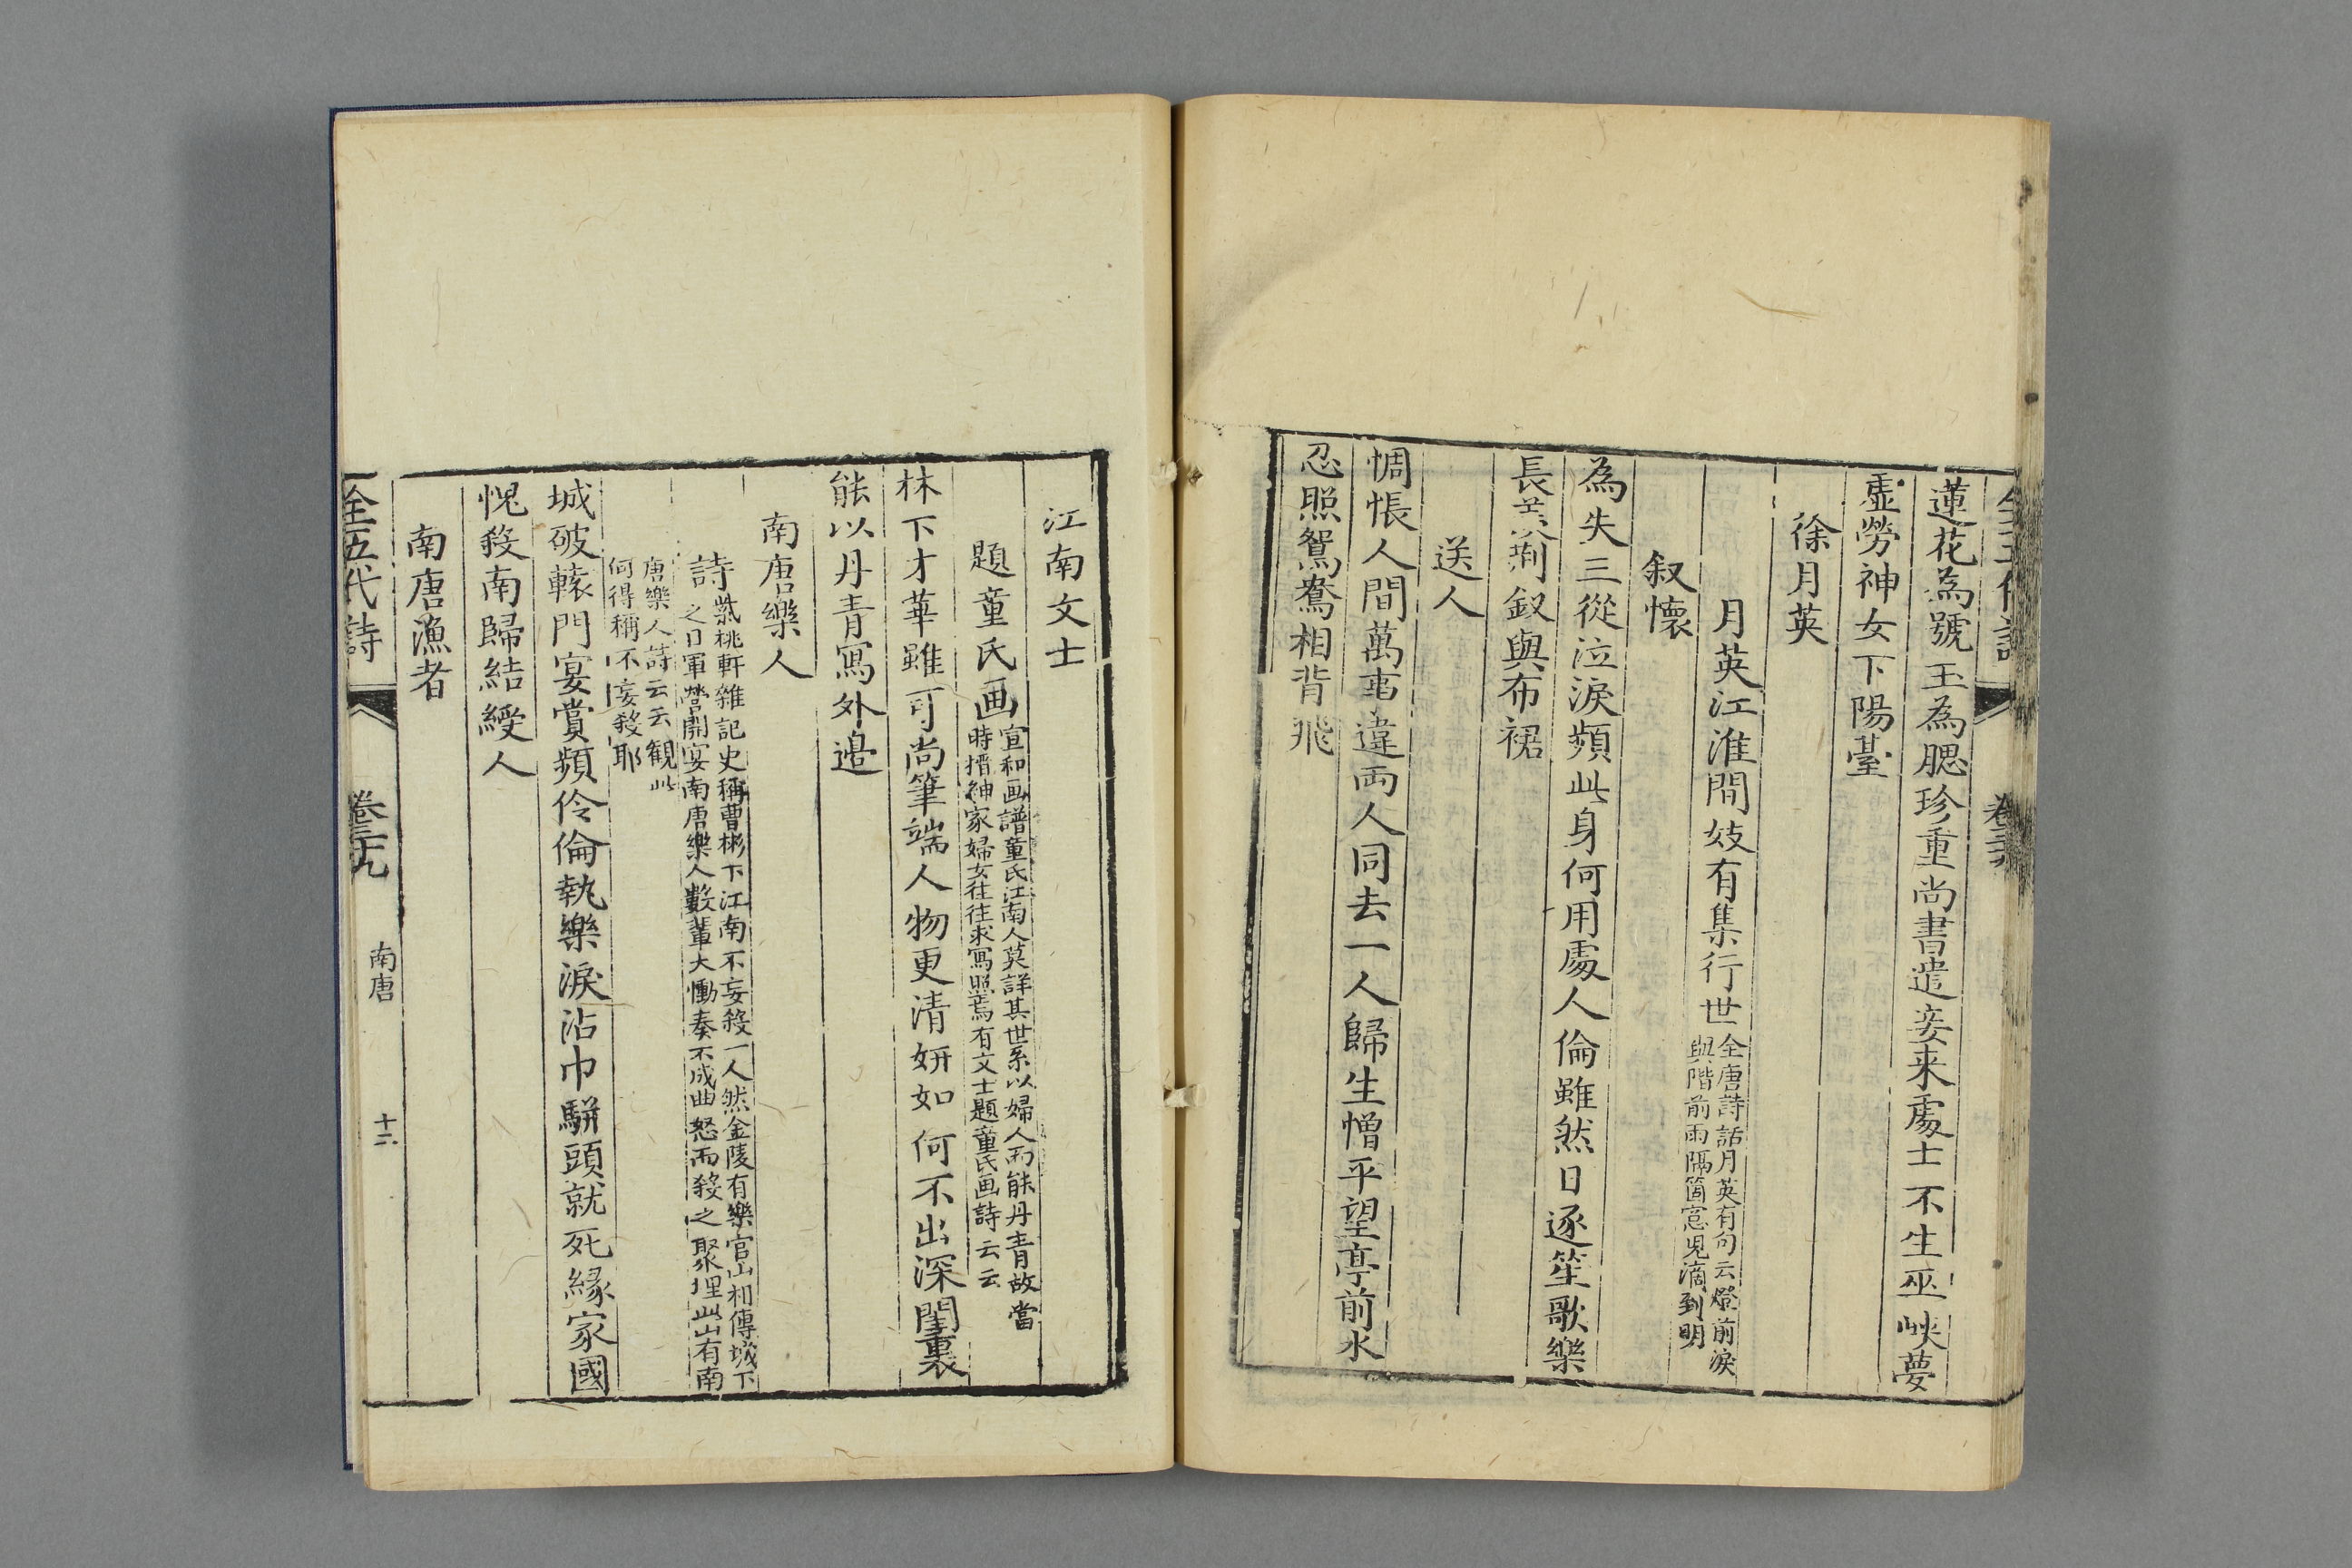 蓮花為號玉為腮珍重尚書遣妾来處士不生巫峽夢
虛勞神女下陽臺
徐月英
月英江淮間妓有集行世全唐詩話月英有句云燈前淚
與階前雨隔箇窓児滴到明
叙懷
為失三從泣淚頻此身何用處人倫雖然日逐笙歌樂
長羨荆釵與布裙
送人
惆悵人間萬事違両人同去一人歸生憎平望亭前水
忍照鴛鴦相背飛
江南文士
題童氏画宣和画譜童氏江南人莫詳其世系以婦人而能丹青故當
時搢紳家婦女往往求冩照焉有文士題童氏画詩云云
林下才華雖可尚筆端人物更清妍如何不出深閨裏
能以丹青冩外邉
南唐樂人
詩紫桃軒雜記史稱曹彬下江南不妄殺一人然金陵有樂官山相傳城下
之日軍營開宴南唐樂人數輩大慟奏不成曲怒而殺之聚埋此山有南
唐樂人詩云云觀此
何得稱不妄殺耶
城破轅門宴賞頻伶倫執樂淚沾巾駢頭就死緣家國
愧殺南歸結綬人
南唐漁者
全五代詩 卷三十九 南唐 十二